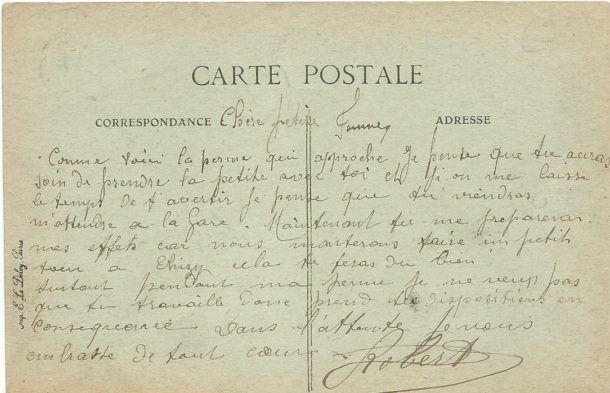 CARTE POSTALE
CORRESPONDANCE Chère petite Femme ADRESSE
Comme voici la perme qui approche je pense que tu auras
soin de prendre la petite avec toi et si on me laisse
le temps de t'avertir je pense que tu viendras
m'attendre a la Gare. Maintenant tu me prepareras
mes effets car nous monterons faire un petit
tour a cela te feras du bien
surtout pendant ma perme je ne veux pas
que tu travaille donc prend tes dispositions en
consequence Dans l'attente je vous
embrasse de tout cœur
Robert
Imp. E. Le Deley, Paris